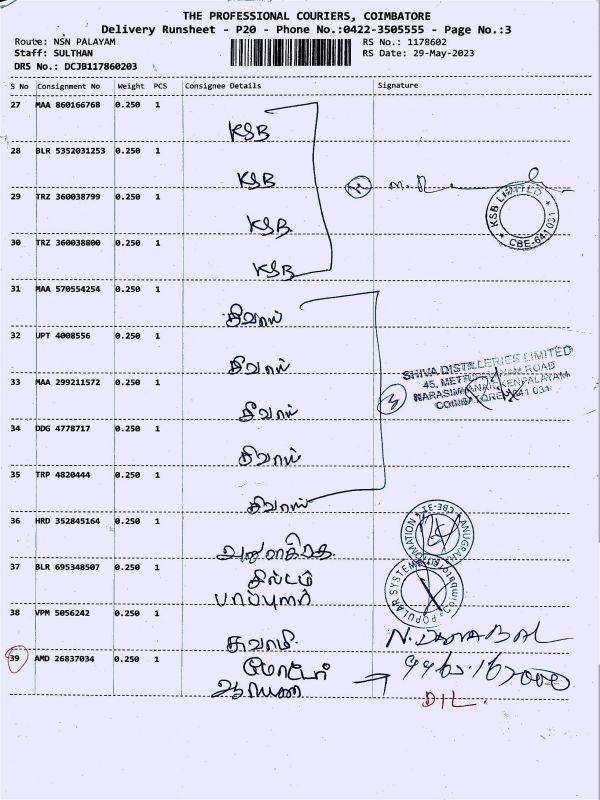 THE PROFESSIONAL COURIERS, COIMBATORE
Delivery Runsheet - P20 - Phone No.:0422-3505555 - Page No.:3
Route: NSN PALAYAM
RS No.: 1178602
Staff: SULTHAN
RS Date: 29-May-2023
DRS No.: DCJB117860203
S No Consignment No Weight PCS Consignee Details Signature
27 MAA 860166768 0.250 1
KSB
28 BLR 5352031253 0.250 1
KSB
29 TRZ 360038799 0.250 1
KSB
KSB LIMITED
* CBE-641 031 *
30 TRZ 360038800 0.250 1
KSB
31 MAA 570554254 0.250 1
சிவாஸ்
32 UPT 4008556 0.250 1
சிவாஸ்
SHIVA DISTILLERIES LIMITED
33 MAA 299211572 0.250 1
சிவாஸ்
34 DDG 4778717 0.250 1
சிவாஸ்
35 TRP 4820444 0.250 1
சிவாஸ்
36 HRD 352845164 0.250 1
37 BLR 695348507 0.250 1
POPULAR SYSTEMS
38 VPM 5056242 0.250 1
சுவாமி
39 AMD 26837034 0.250 1
மோட்டர்